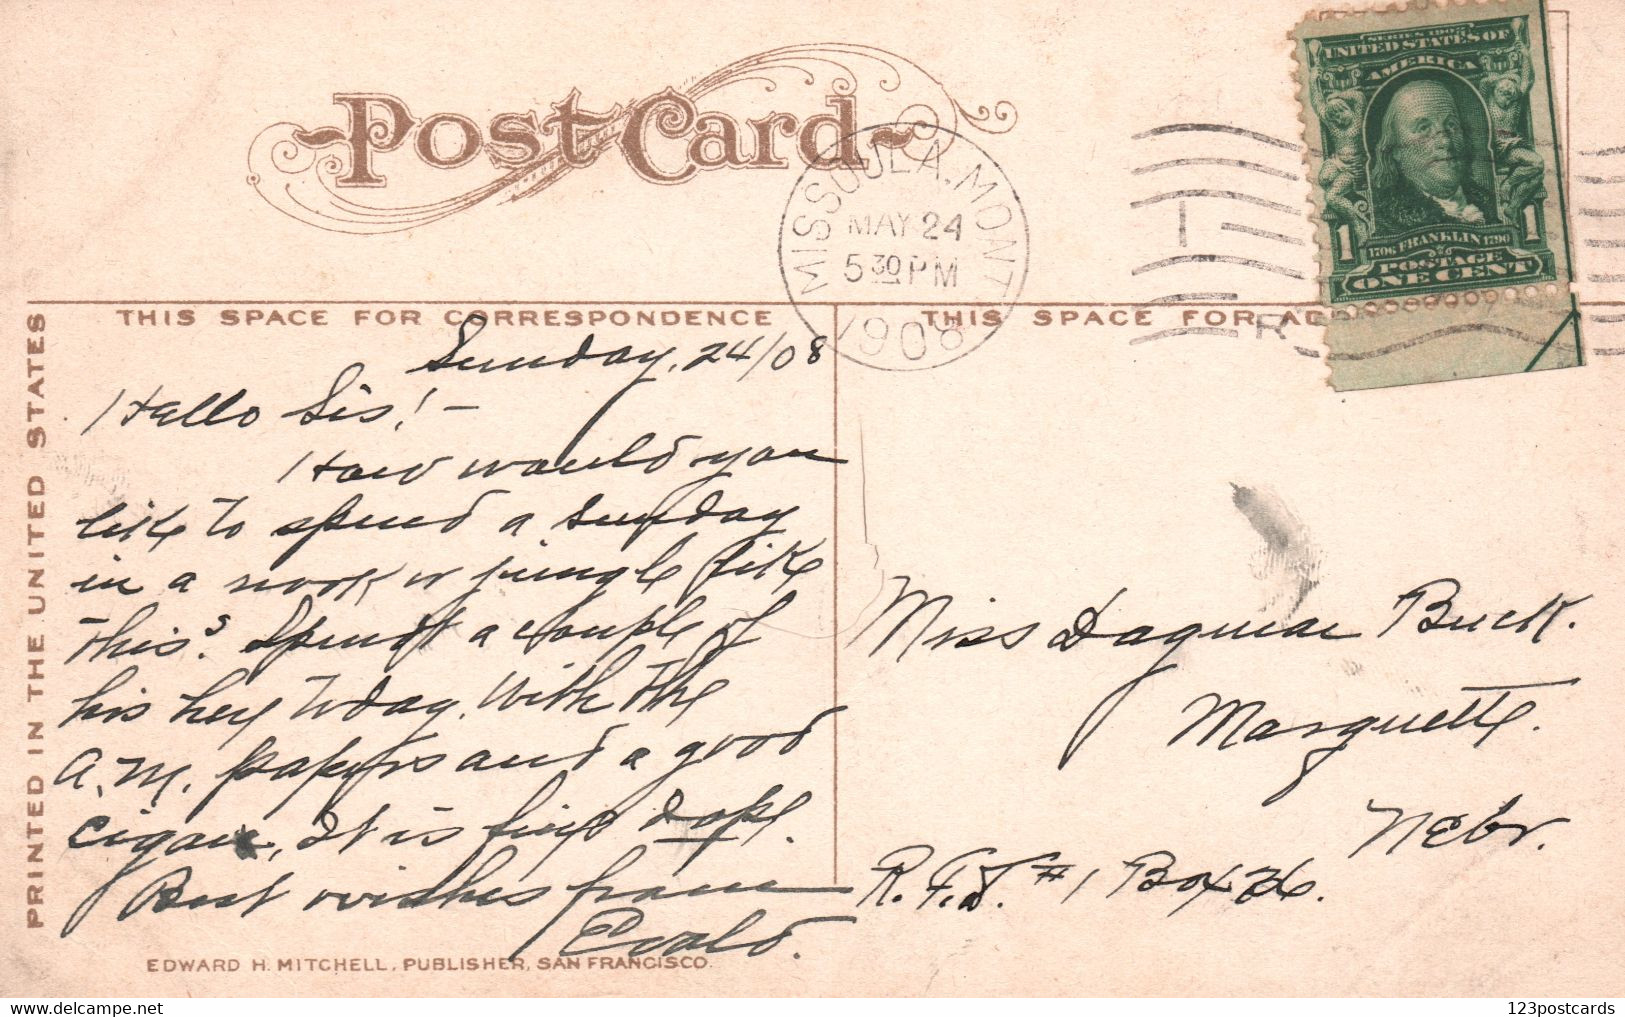 Post Card
SERIES 1902
UNITED STATES OF
AMERICA
1 1
1706 FRANKLIN 1790
POSTAGE
ONE CENT
MISSOULA, MONT
MAY 24
5 30 PM
1908
PRINTED IN THE UNITED STATES
THIS SPACE FOR CORRESPONDENCE
THIS SPACE FOR AD
Sunday, 24/08
Hello Sis! -
How would you
like to spend a Sunday
in a nook or jungle like
this? Spent a couple of
his here today. With the
A.M. papers and a good
cigar, It is fine dope.
Best wishes from
Evald.
Miss Dagmar Buck.
Marquette.
Nebr.
R.F.D. #1 Box 26.
EDWARD H. MITCHELL, PUBLISHER, SAN FRANCISCO.
WWW.DELCAMPE.NET
123postcards